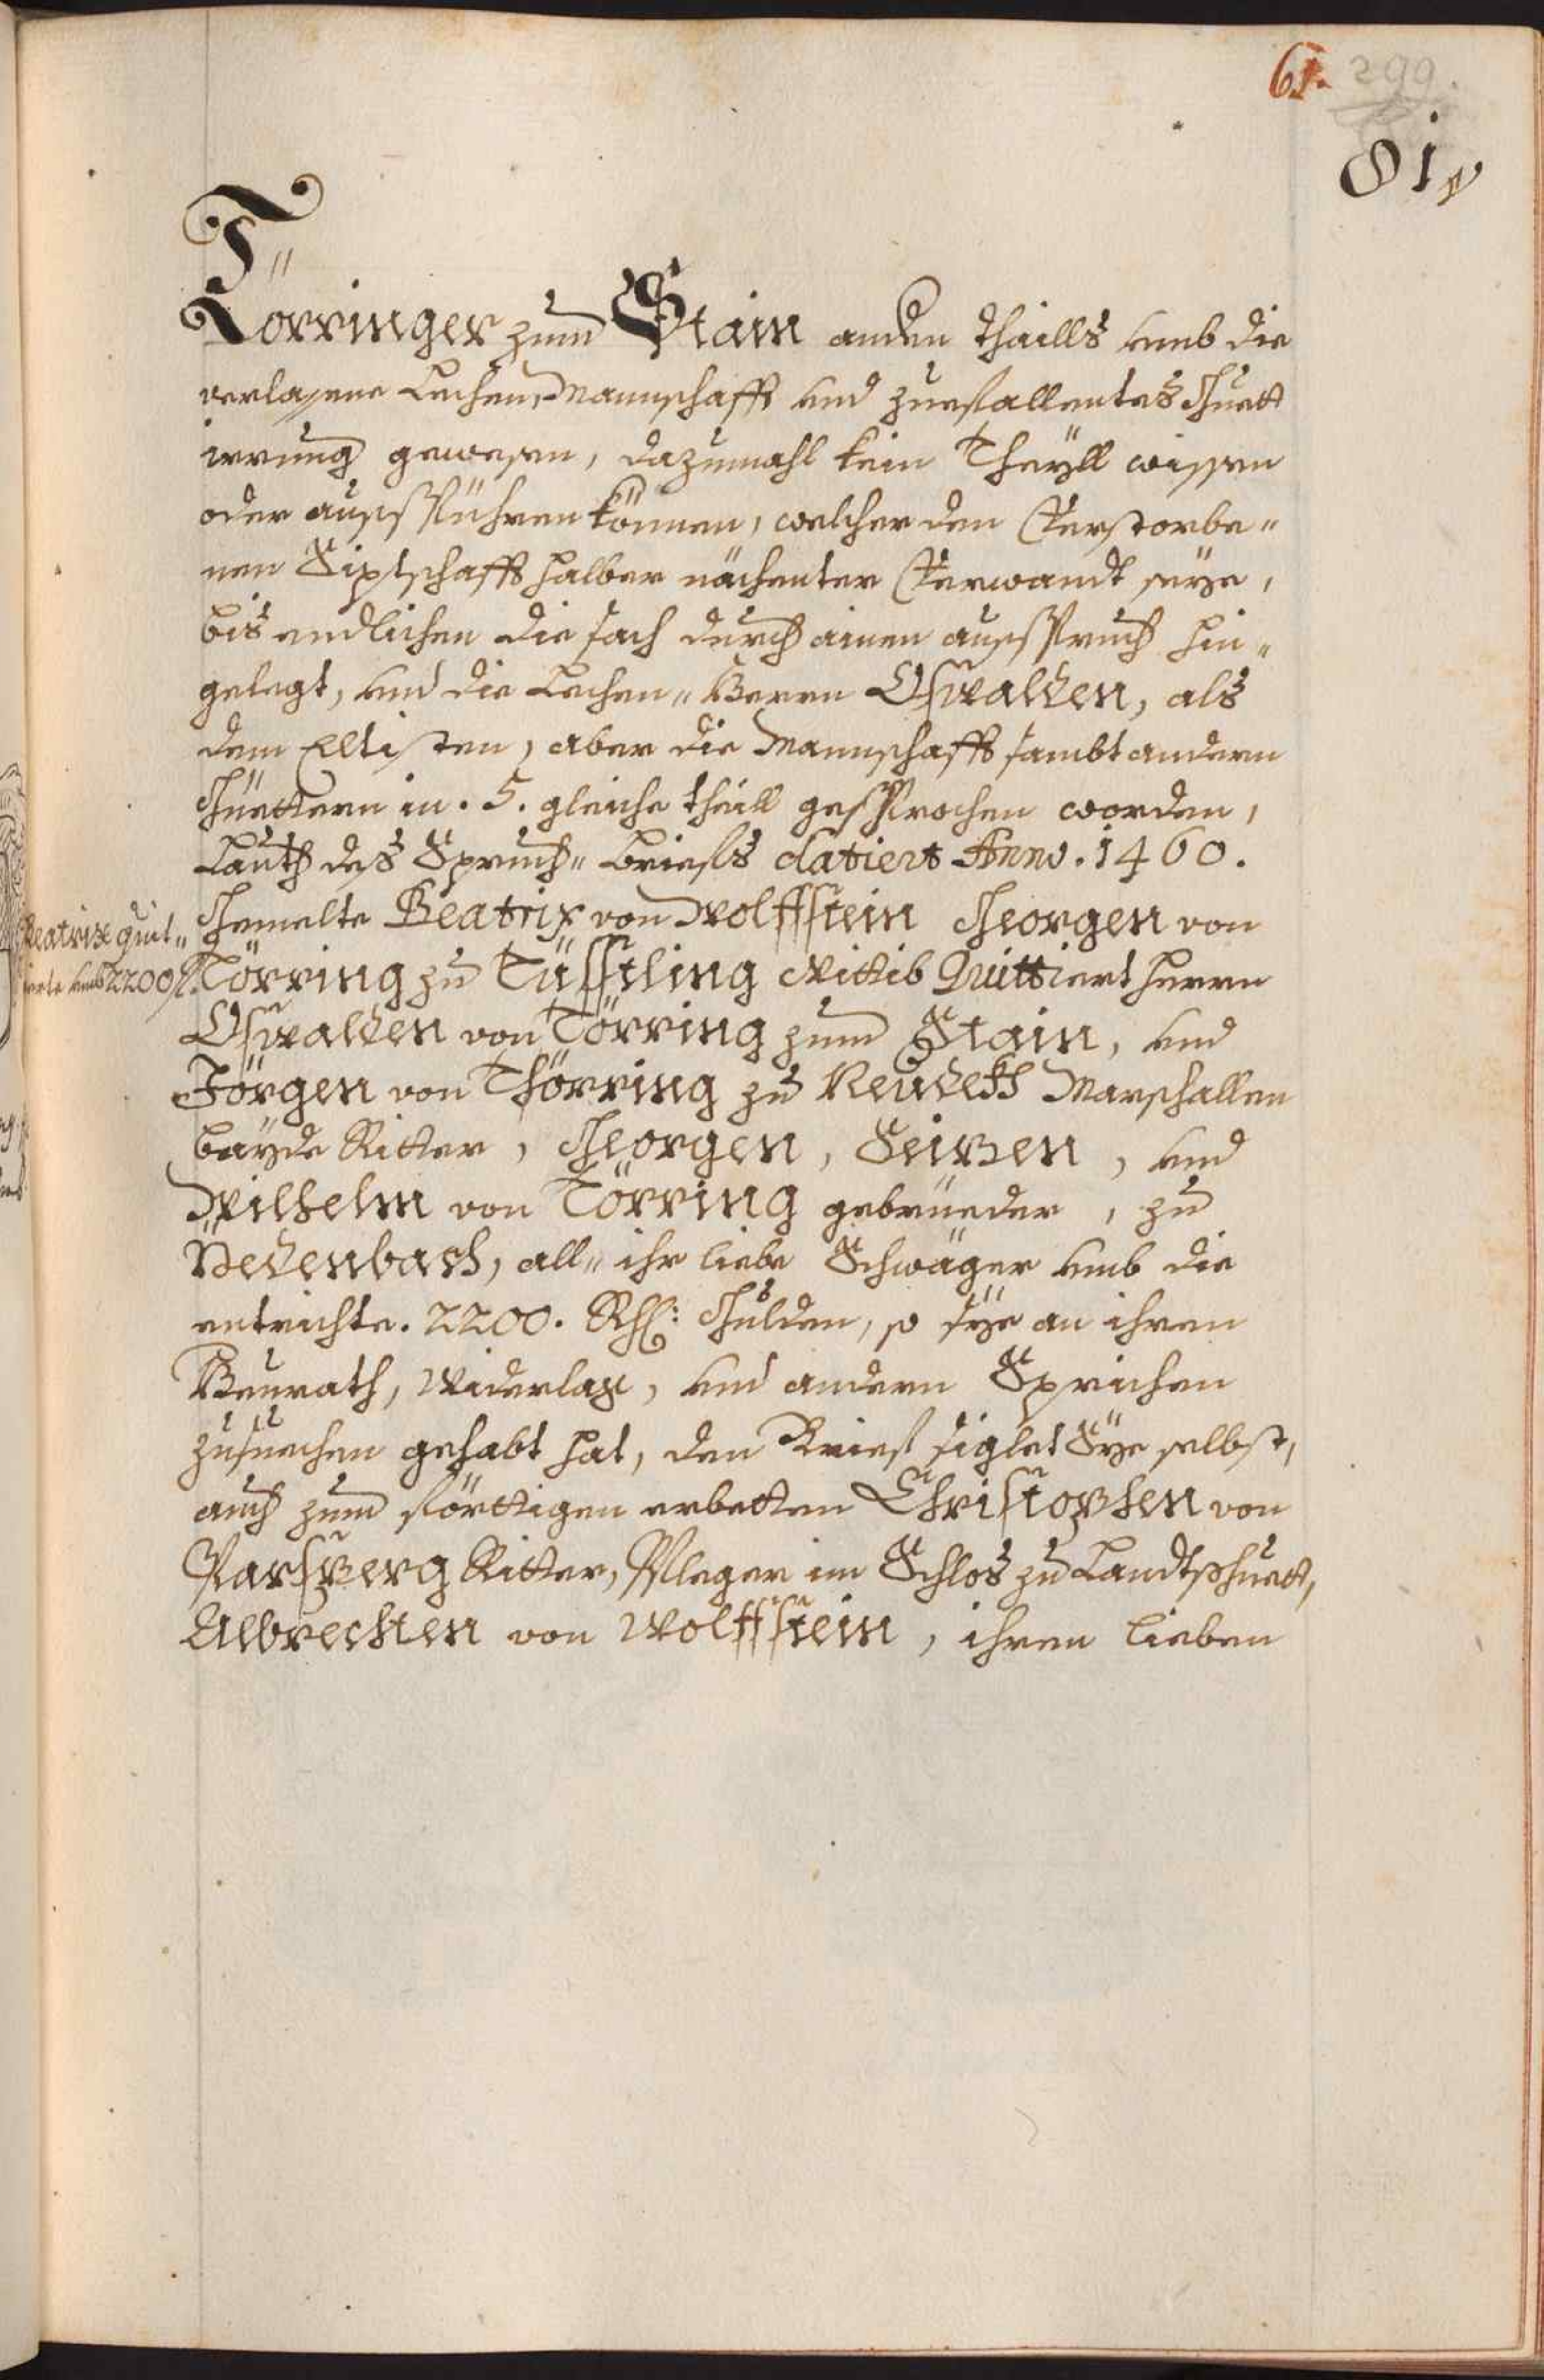 61. 299.
81
Törringer zum Stain anden thaills umb die
verlasene Lechen, Mannschafft und zuefallentes Guett
irrung gewesen, dazumahl kein Theyll wissen
oder ausspühren können, welcher den Verstorbe„
nen Siptschafft halber nächenter Verwandt seye,
bis endlichen die sach durch ainen ausspruch hin„
gelegt, und die Lechen„ Herrn Oswalden, als
dem Eltisten, aber die Mannschafft sambt andern
Güettern in . 5. gleiche theill gesprochen worden,
Lauth des Spruch„ briefs datiert Anno . 1460.
Gemelte Beatrix von Wolffstein Georgen von
Törring zu Tüssling Wittib Quittiert herrn
Oswalden von Törring zum Stain, und
Jörgen von Thörring zu Neudekh Marschallen
bayde Ritter, Georgen, Seizen, und
Wilhelm von Törring gebrüeder, zu
Pedenbach, all„ ihr liebe Schwäger umb die
entrichte . 2200. Rh: Gulden, so sye an ihren
Heurath, Widerlag, und andern Sprichen
zusuechen gehabt hat, den Brief siglet Sye selbst,
auch zum förttigen erbetten Christophen von
Parsperg Ritter, Pfleger im Schlos zu Landtshuett,
Albrechten von Wolffstein, ihren lieben
Beatrix quit„
umb 2200 fl.